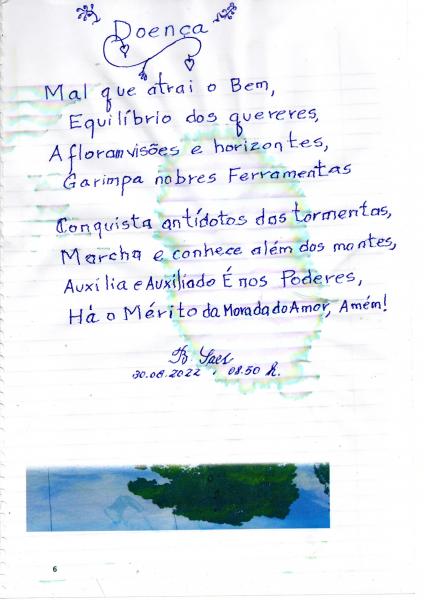 Doença
Mal que atrai o Bem,
Equilíbrio dos quereres,
Afloram visões e horizontes,
Garimpa nobres Ferramentas
Conquista antídotos das tormentas,
Marcha e conhece além dos montes,
Auxilia e Auxiliado É nos Poderes,
Há o Mérito da Morada do Amor, Amém!
30.06.2022 , 08.50 h.
6